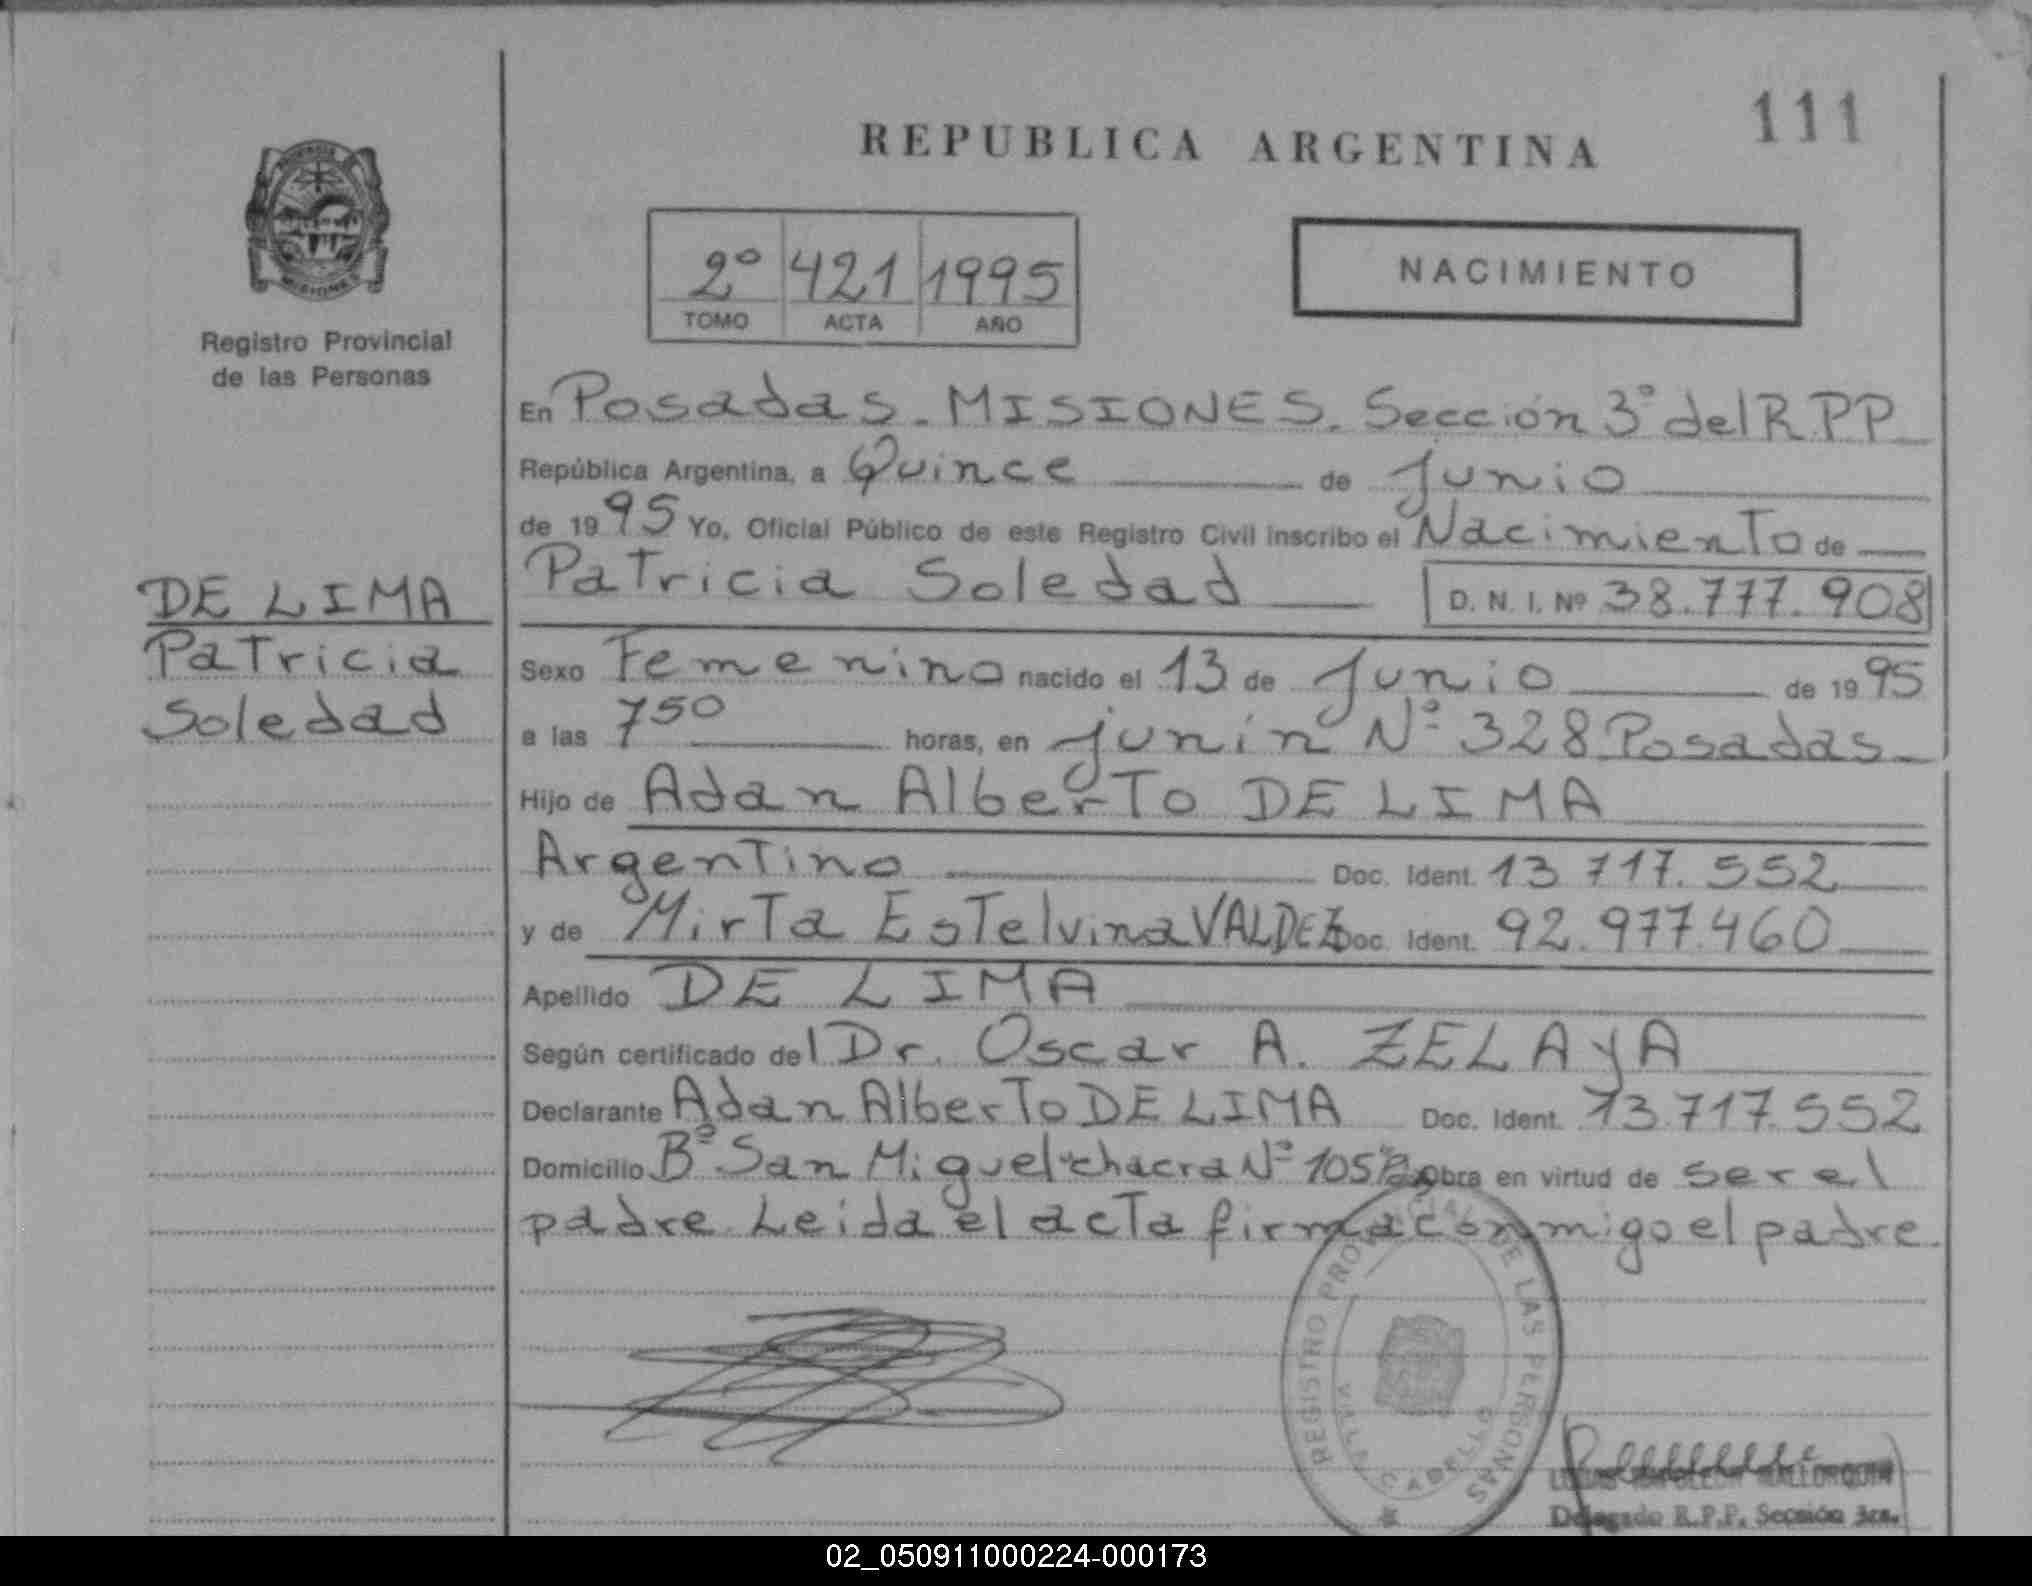 111
REPUBLICA ARGENTINA
PROVINCIA DE
MISIONES
Registro Provincial
de las Personas
2º 421 1995
TOMO ACTA AÑO
NACIMIENTO
En Posadas - MISIONES. Sección 3º del R.P.P
República Argentina, a Quince de Junio
de 1995 Yo, Oficial Público de este Registro Civil inscribo el Nacimiento de
DE LIMA
Patricia
Soledad
Patricia Soledad D. N. I. Nº 38.777.908
Sexo Femenino nacido el 13 de Junio de 1995
a las 750 horas, en junín Nº 328 Posadas
Hijo de Adan Alberto DE LIMA
Argentino Doc. Ident. 13.717.552
y de Mirta Estelvina VALDEZ Doc. Ident. 92.977.460
Apellido DE LIMA
Según certificado del Dr. Oscar A. ZELAYA
Declarante Adan Alberto DE LIMA Doc. Ident. 13.717.552
Domicilio Bº San Miguel chacra Nº 105 Obra en virtud de ser el
padre. Leida el acta firma conmigo el padre.
REGISTRO PROVINCIAL DE LAS PERSONAS
VILLA CABELLO
Delegado R.P.P. Sección 3ra.
02_050911000224-000173